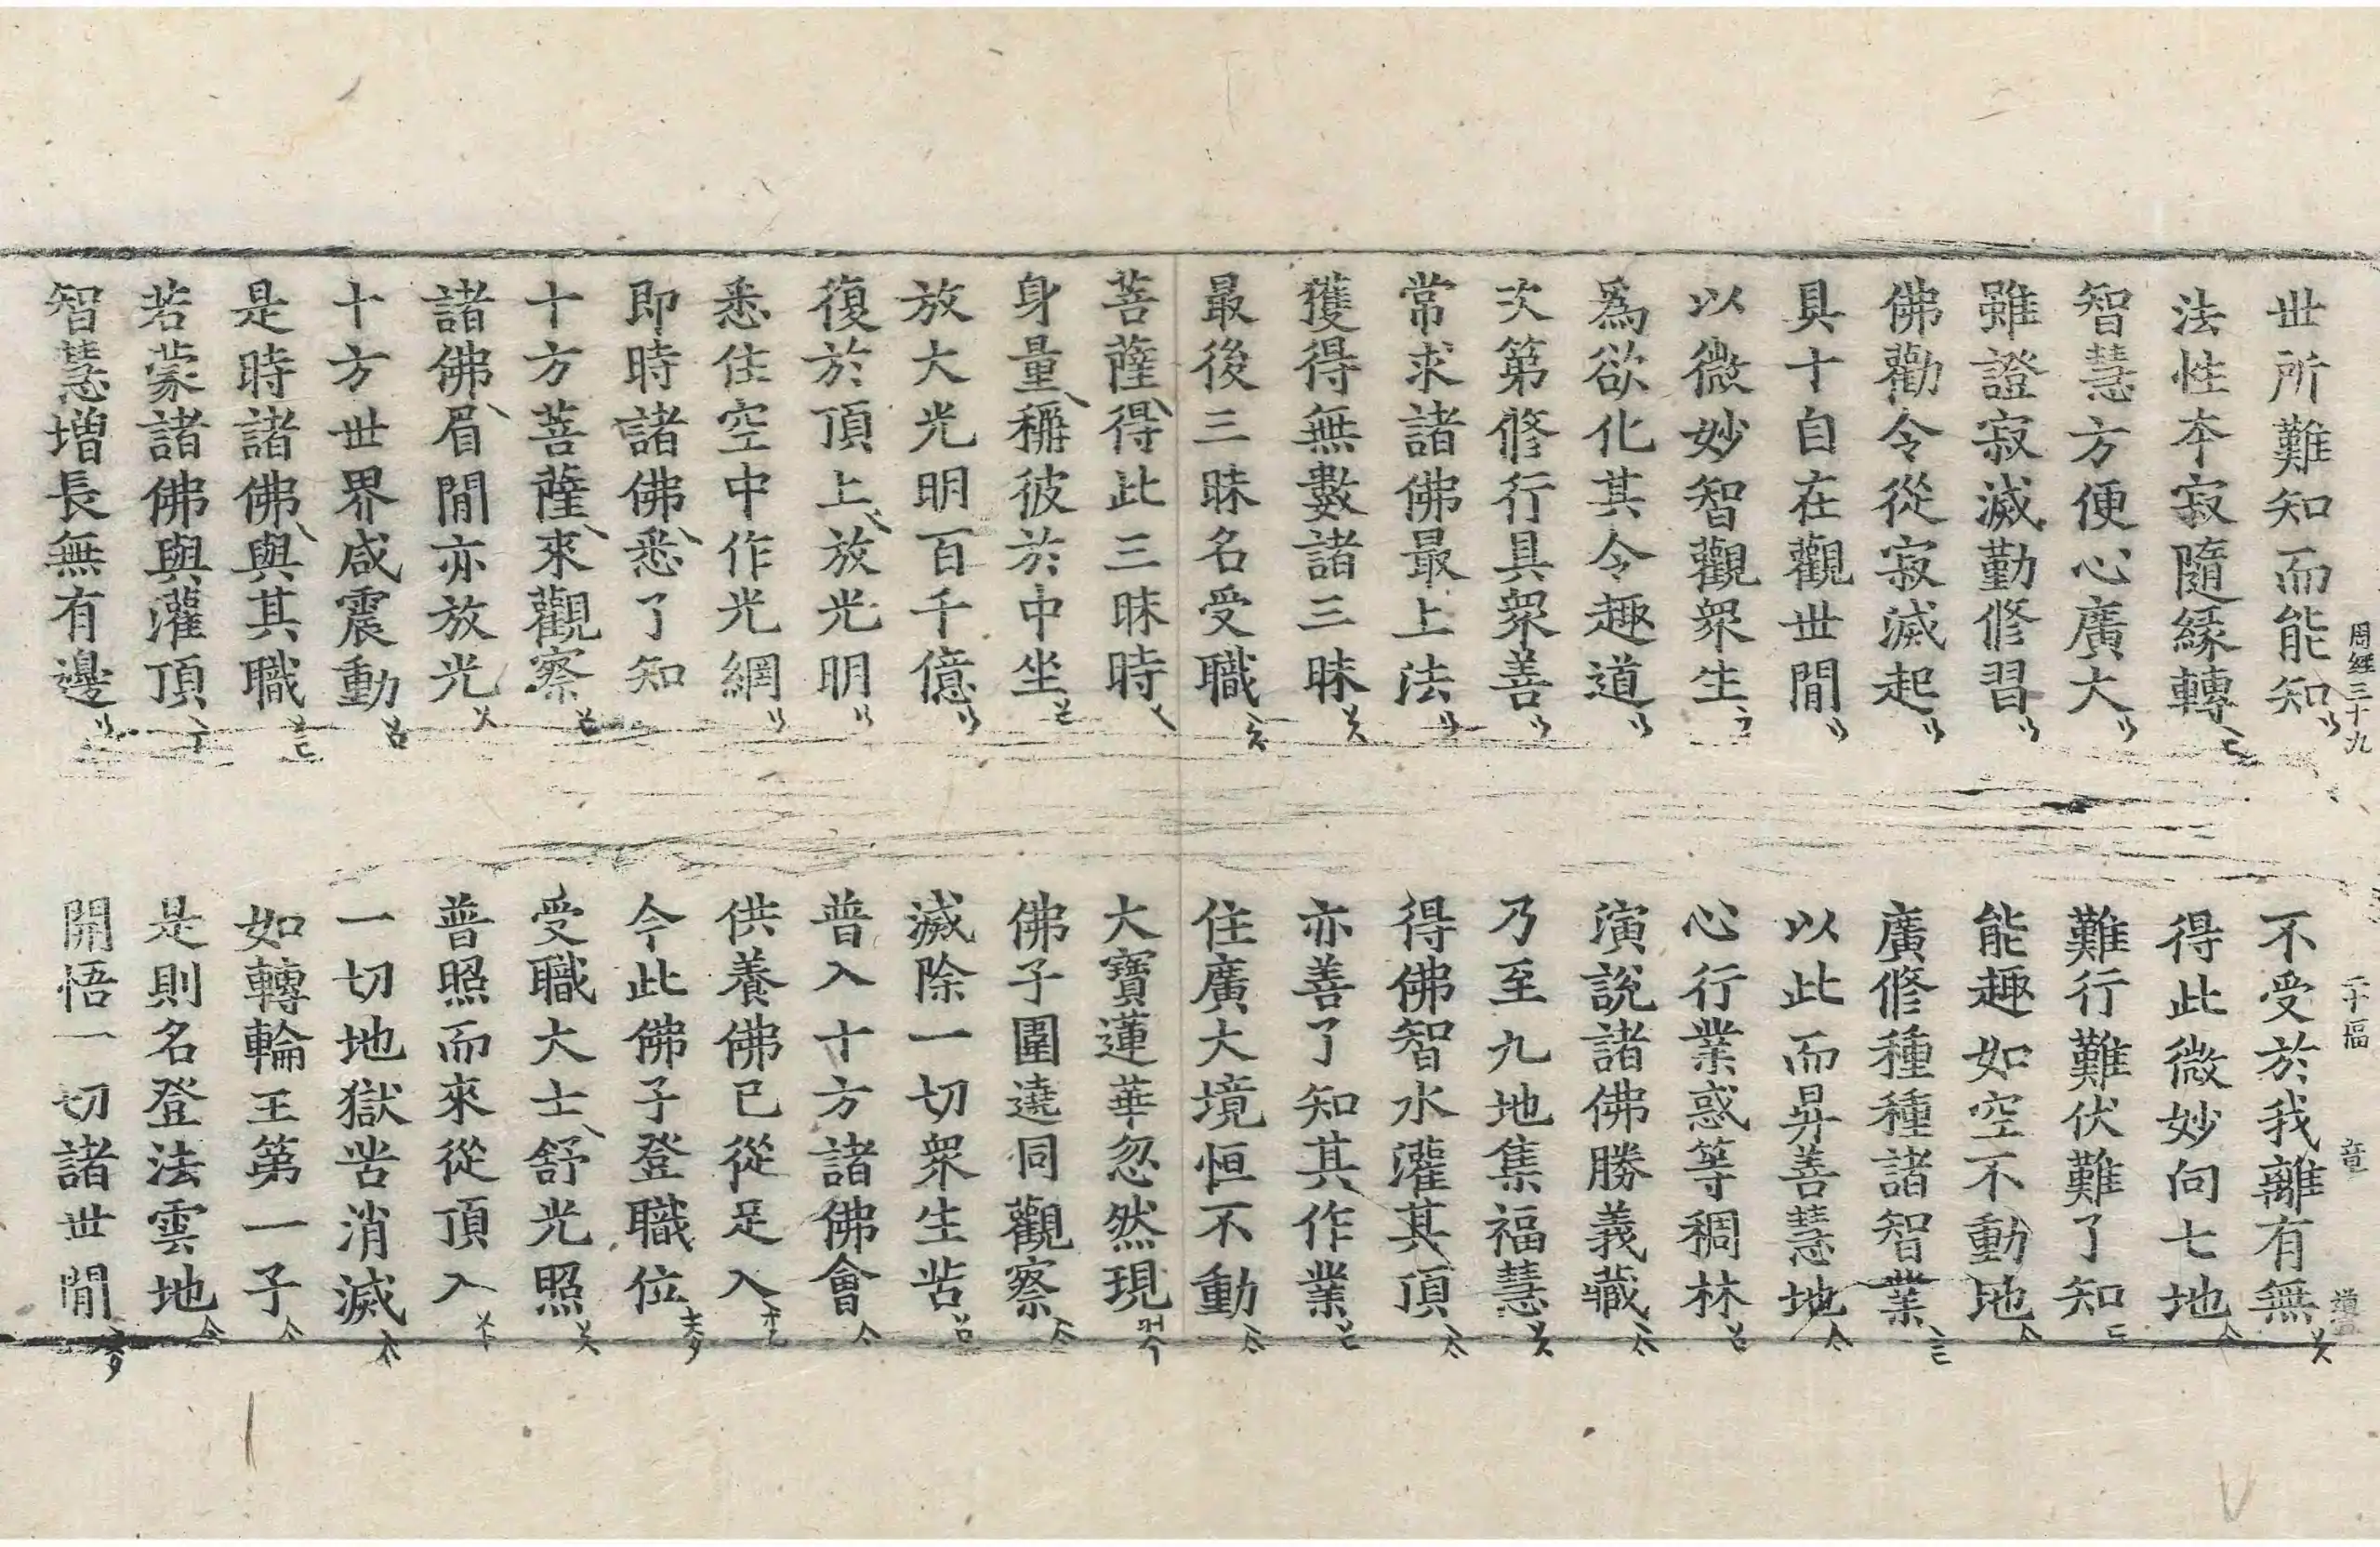 周經三十九 二十幅 章
世所難知而能知 不受於我離有無
法性本寂隨緣轉 得此微妙向七地
智慧方便心廣大 難行難伏難了知
雖證寂滅勤修習 能趣如空不動地
佛勸令從寂滅起 廣修種種諸智業
具十自在觀世閒 以此而昇善慧地
以微妙智觀眾生 心行業惑等稠林
爲欲化其令趣道 演說諸佛勝義藏
次第修行具眾善 乃至九地集福慧
常求諸佛最上法 得佛智水灌其頂
獲得無數諸三昧 亦善了知其作業
最後三昧名受職 住廣大境恒不動
菩薩得此三昧時 大寶蓮華忽然現
身量稱彼於中坐 佛子圍遶同觀察
放大光明百千億 滅除一切眾生苦
復於頂上放光明 普入十方諸佛會
悉住空中作光網 供養佛已從足入
即時諸佛悉了知 今此佛子登職位
十方菩薩來觀察 受職大士舒光照
諸佛眉閒亦放光 普照而來從頂入
十方世界咸震動 一切地獄苦消滅
是時諸佛與其職 如轉輪王第一子
若蒙諸佛與灌頂 是則名登法雲地
智慧增長無有邊 開悟一切諸世閒